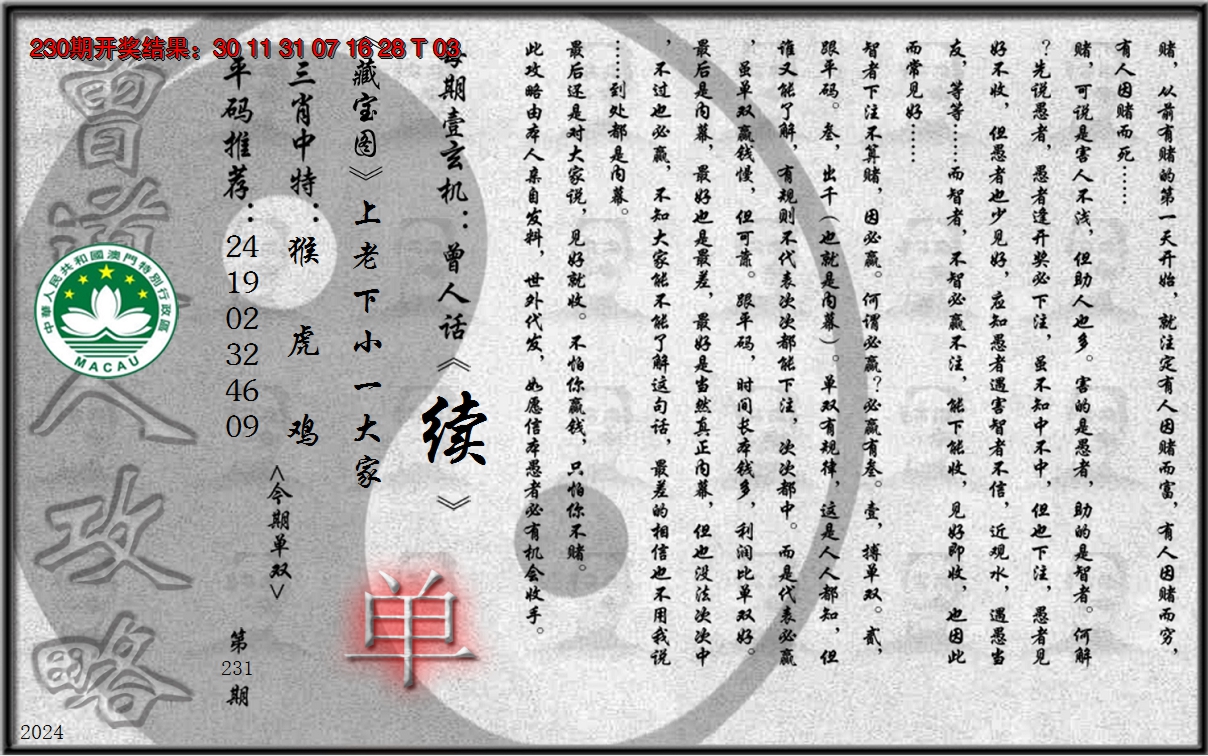 230期开奖结果：30 11 31 07 16 28 T 03
赌，从前有赌的第一天开始，就注定有人因赌而富，有人因赌而穷，
有人因赌而死……
赌，可说是害人不浅，但助人也多。害的是愚者，助的是智者。何解
？先说愚者，愚者逢开奖必下注，虽不知中不中，但也下注，愚者见
好不收，但愚者也少见好，应知愚者遇害智者不信，近观水，遇愚当
友，等等……而智者，不智必赢不注，能下能收，见好即收，也因此
而常见好……
智者下注不算赌，因必赢。何谓必赢？必赢有叁。壹，搏单双。贰，
跟平码。叁，出千（也就是内幕）。单双有规律，这是人人都知，但
谁又能了解，有规则不代表次次都能下注，次次都中。而是代表必赢
，虽单双赢钱慢，但可靠。跟平码，时间长本钱多，利润比单双好。
最后是内幕，最好也是最差，最好是当然真正内幕，但也没法次次中
，不过也必赢，不知大家能不能了解这句话，最差的相信也不用我说
……到处都是内幕。
最后还是对大家说，见好就收。不怕你赢钱，只怕你不赌。
此攻略由本人亲自发料，世外代发，如愿信本愚者必有机会收手。
每期壹玄机：曾人话《续》
《藏宝图》上老下小一大家
单
三肖中特：猴 虎 鸡
<今期单双>
平码推荐：24 19 02 32 46 09
第231期
曾道人攻略
中華人民共和國澳門特別行政區
MACAU
2024